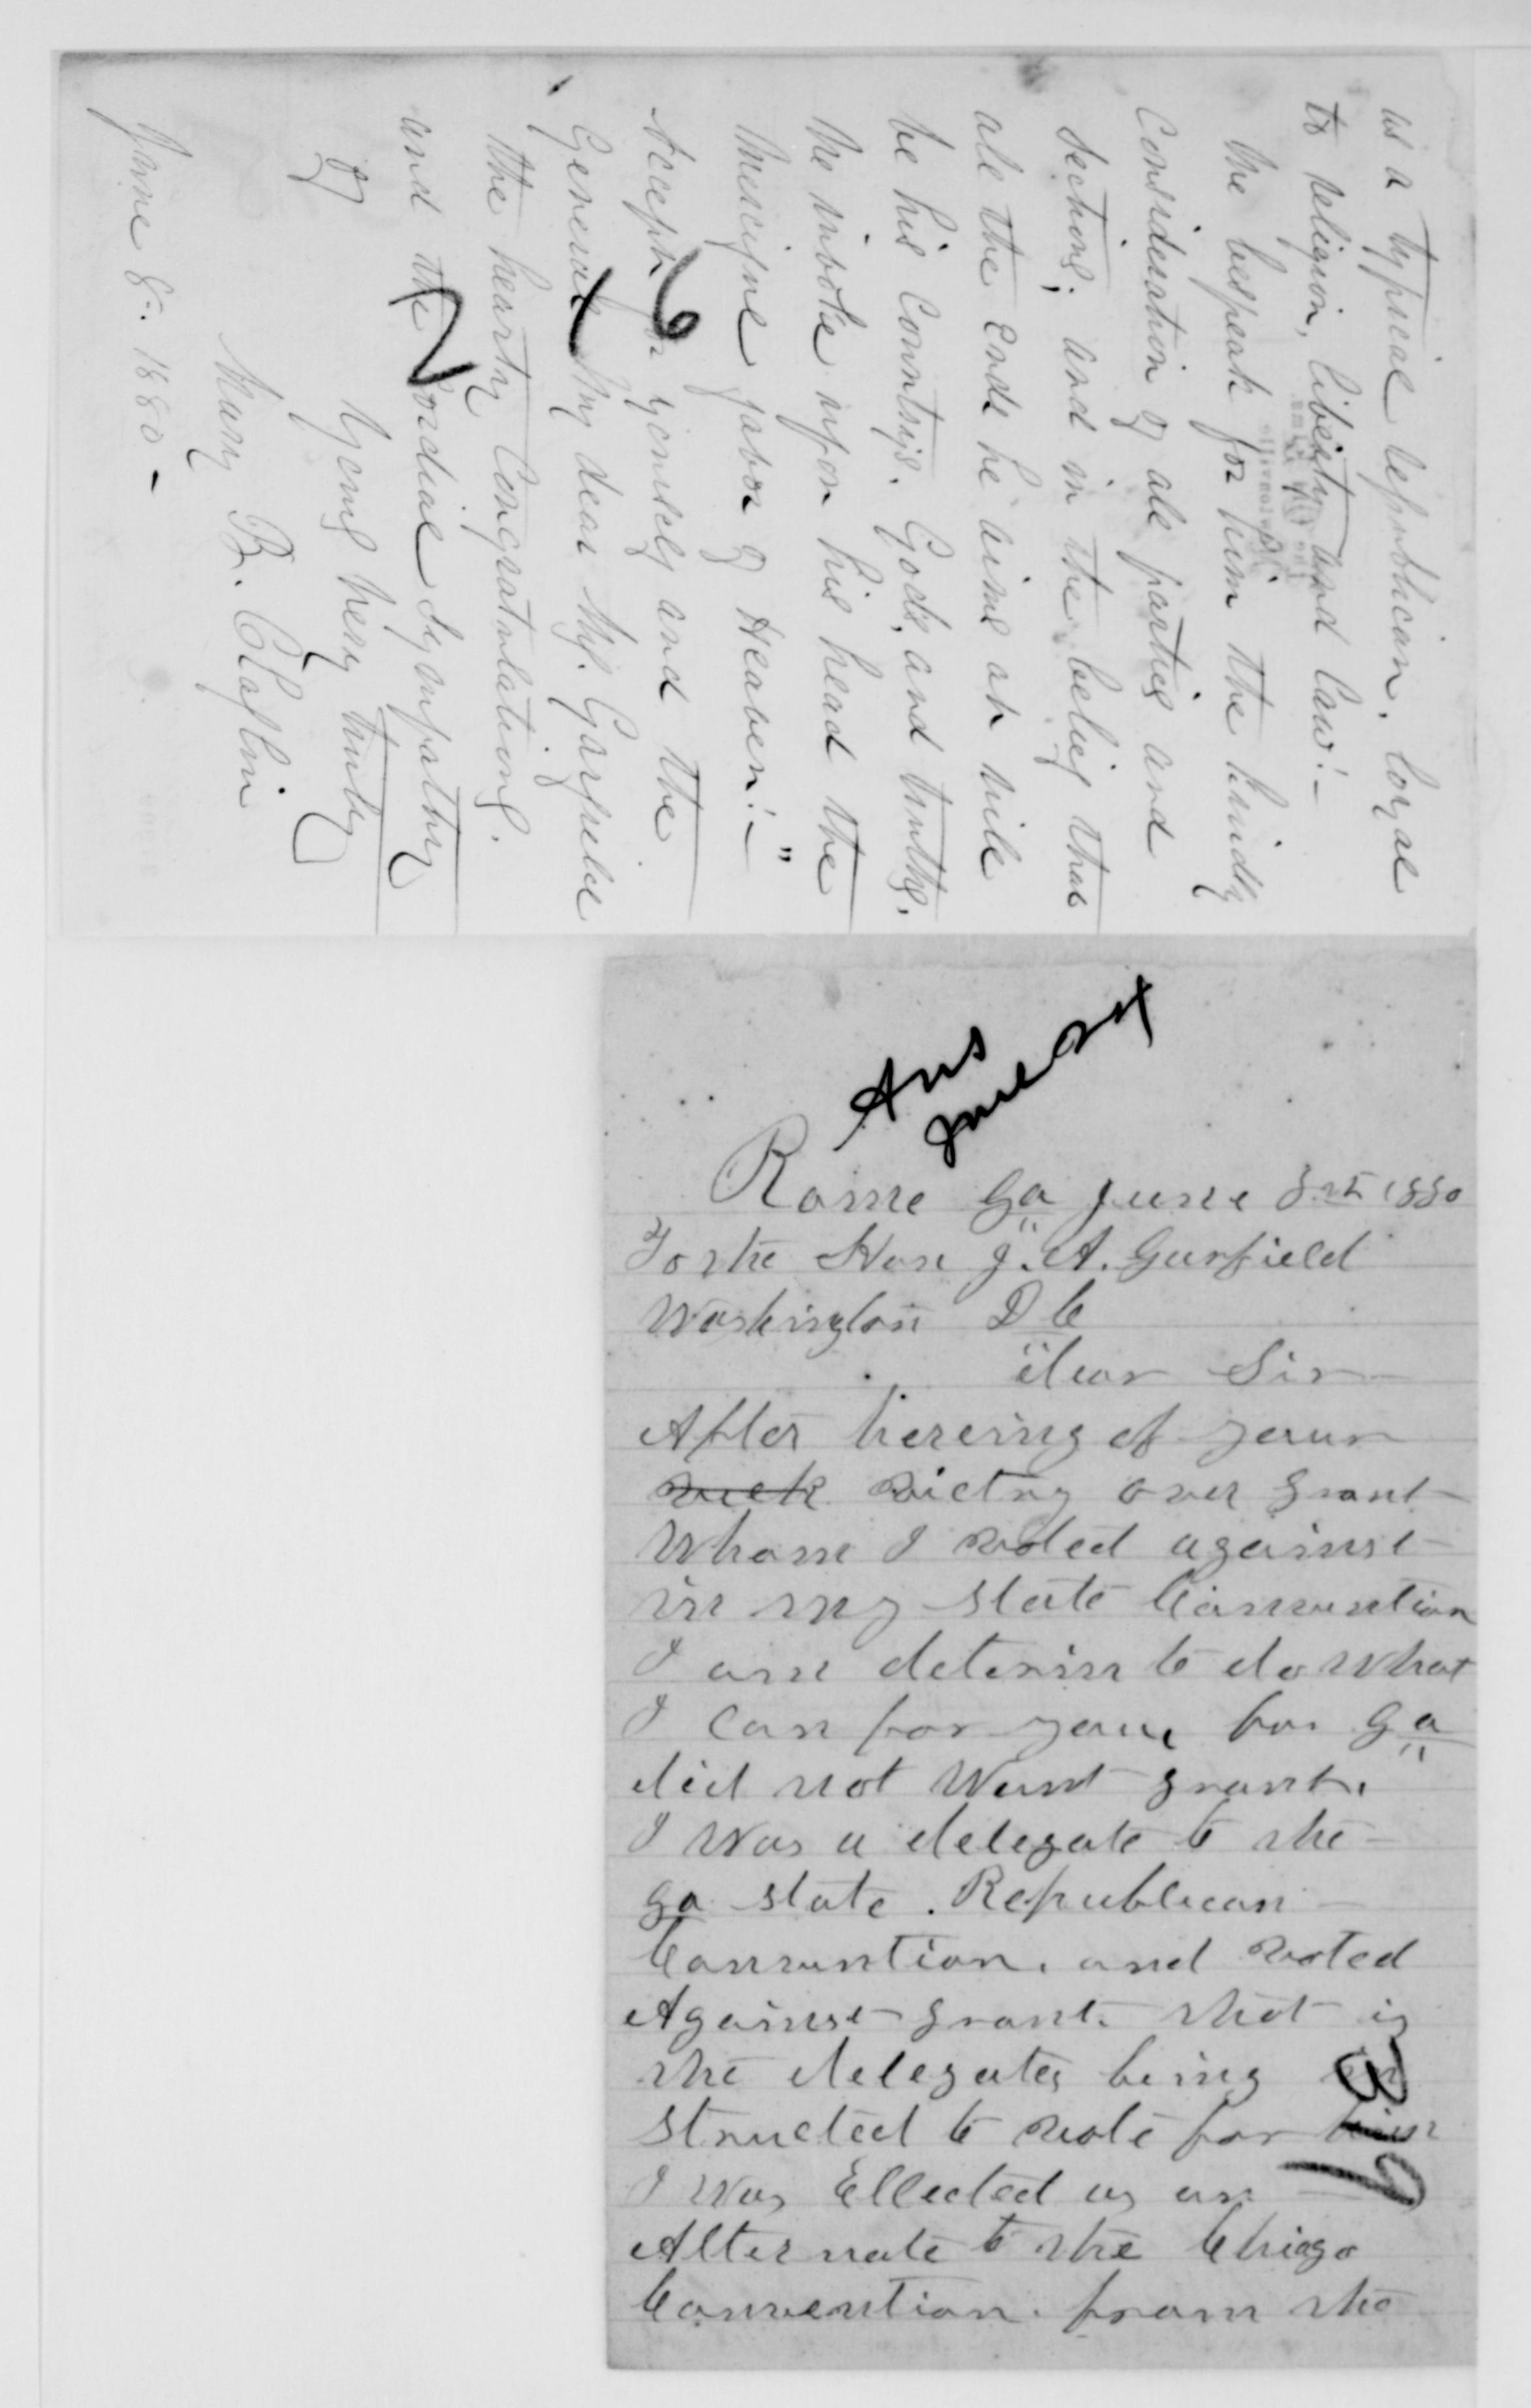 as a typical republican, loyal
to religion, liberty and law! —
We bespeak for him the kindly
Consideration of all parties and
Sections; and in the belief that
all the ends he aims at will
be his Country's, God's, and truth's,
We invoke upon his head the
benign favor of Heaven! — "
Accept for yourself and the
General my dear Mrs. Garfield
the hearty Congratulations.
and the Cordial Sympathy
of
Yours very truly
Mary B. Claflin
June 8. 1880 —
Ans
June 24
Rome Ga June 8th 1880
To the Hon J. A. Garfield
Washington D C
Dear Sir
After hereing of your
vick victry over Grant
Whom I voted against
in my State Convention
I am determin to do What
I Can for you, for Ga
did not Want Grant.
I Was a delegate to the
Ga State. Republican
Convention. and voted
Against Grant. that is
the delegates being in
structed to vote for him
I Was Ellected as an
Alternate to the Chicago
Convention. from the